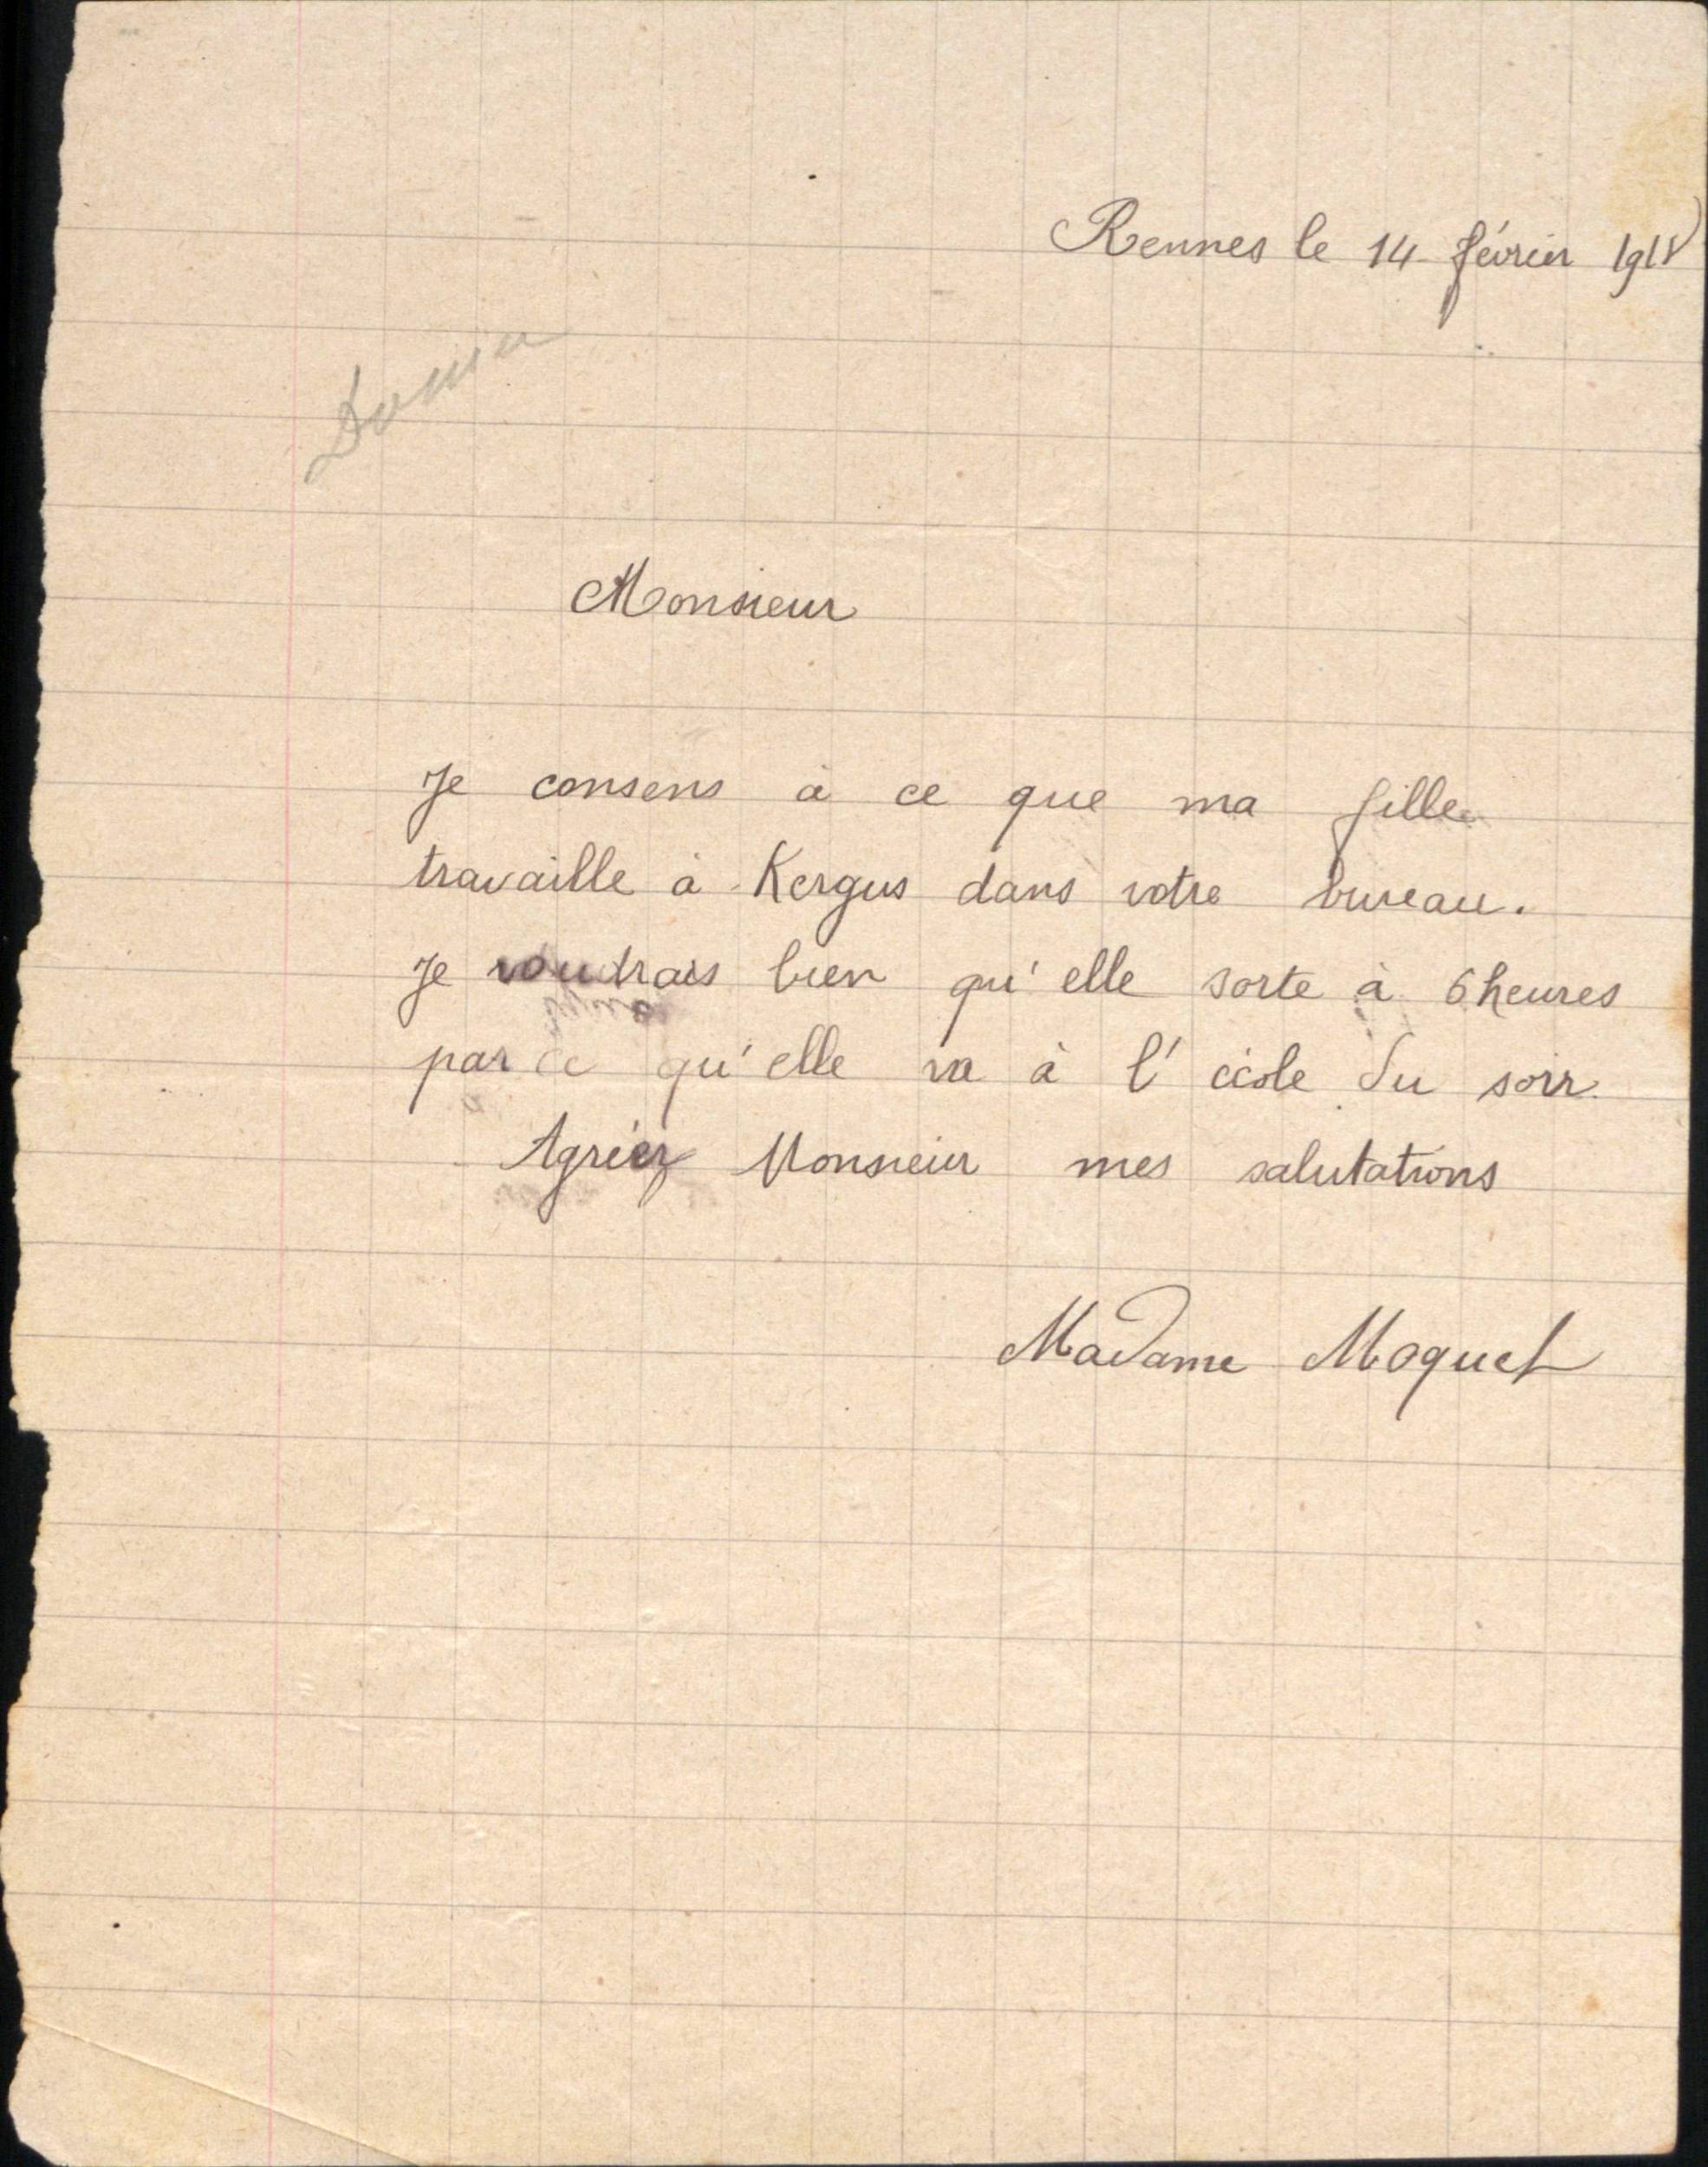 Rennes le 14 février 1918
Monsieur
Je consens à ce que ma fille
travaille à Kergus dans votre bureau.
Je voudrais bien qu'elle sorte à 6 heures
par ce qu'elle va à l'école du soir.
Agréez Monsieur mes salutations
Madame Moquet